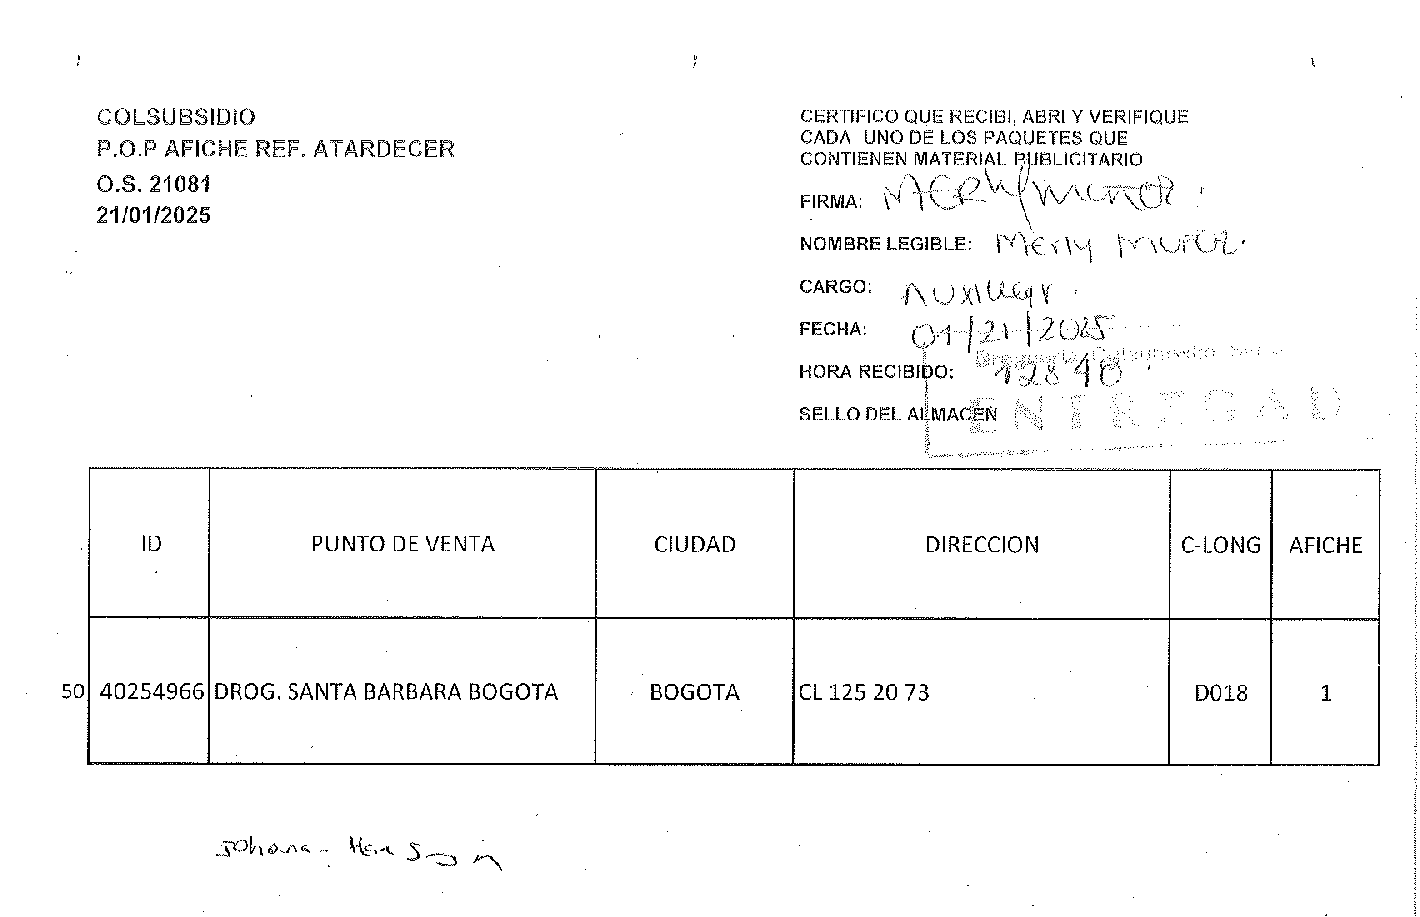 COLSUBSIDIO
P.O.P AFICHE REF. ATARDECER
O.S. 21081
21/01/2025
CERTIFICO QUE RECIBI, ABRI Y VERIFIQUE
CADA UNO DE LOS PAQUETES QUE
CONTIENEN MATERIAL PUBLICITARIO
FIRMA: Merly Muñoz
NOMBRE LEGIBLE: Merly Muñoz
CARGO: Auxiliar
FECHA: 01/21/2025
HORA RECIBIDO:
SELLO DEL ALMACEN
Colsubsidio
ENTREGAD
ID PUNTO DE VENTA CIUDAD DIRECCION C-LONG AFICHE
50 40254966 DROG. SANTA BARBARA BOGOTA BOGOTA CL 125 20 73 D018 1
Johana